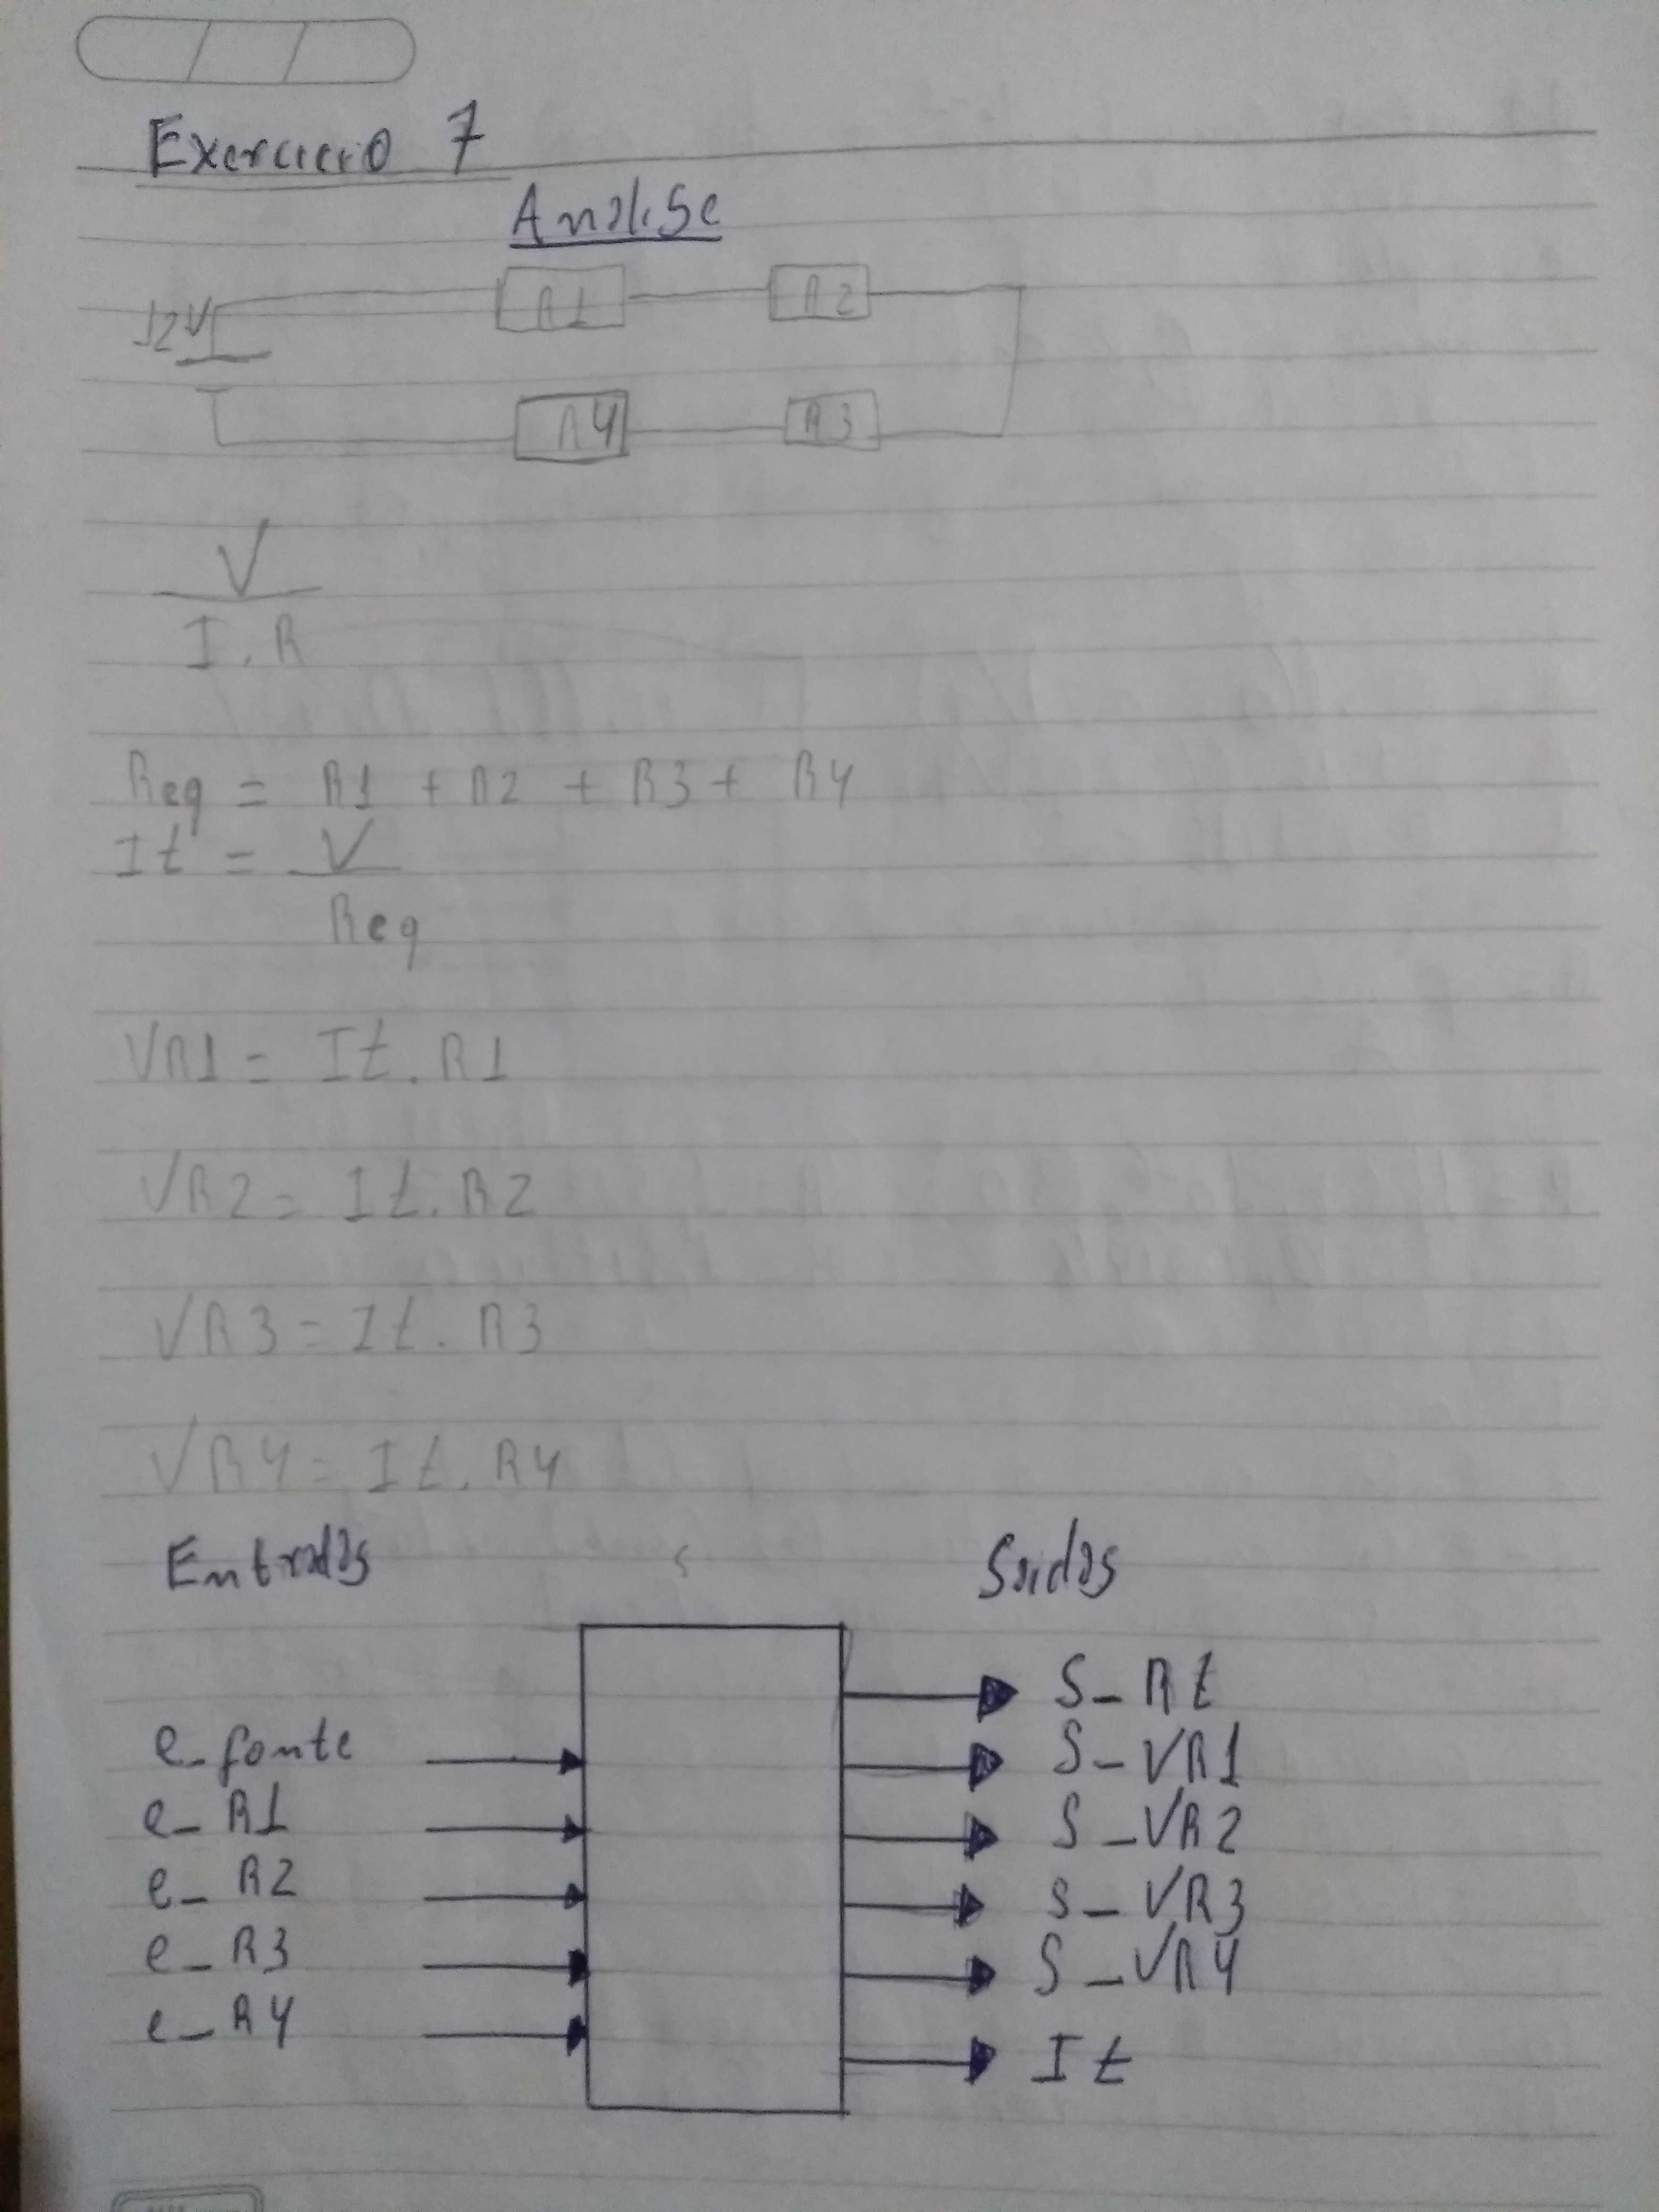 Exercicio 7
Análise
12V
R1
R2
R4
R3
V
I.R
Req = R1 + R2 + R3 + R4
It = V
Req
VR1 = It.R1
VR2 = It.R2
VR3 = It.R3
VR4 = It.R4
Entradas
Saidas
S_Rt
e_fonte
S_VR1
e_R1
S_VR2
e_R2
S_VR3
e_R3
S_VR4
e_R4
It